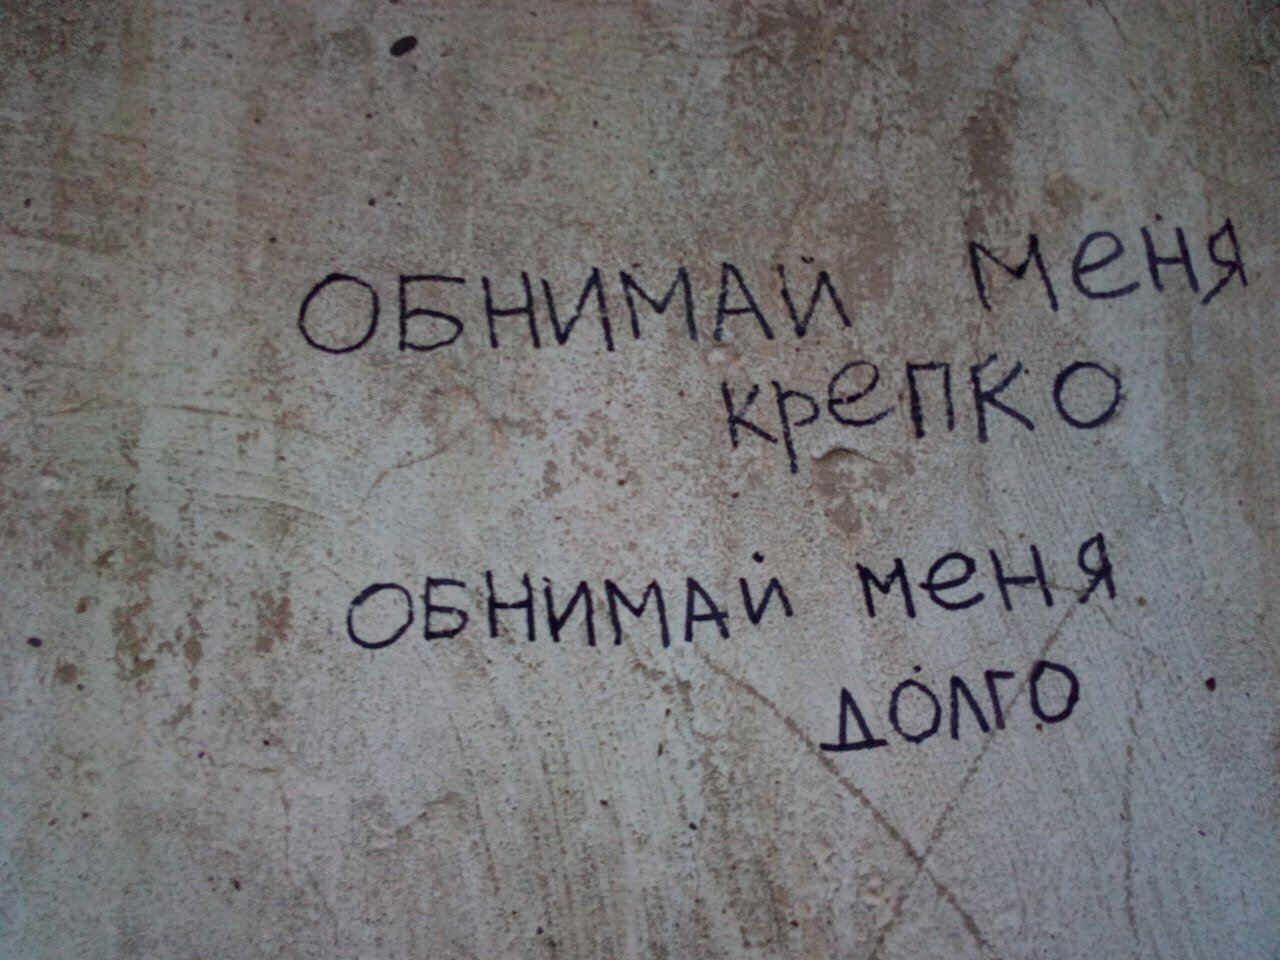 ОБНИМАЙ меня
крепко
ОБНИМАЙ меня
долго